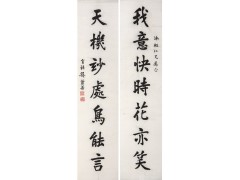 我意快時花亦笑
天機妙處鳥能言